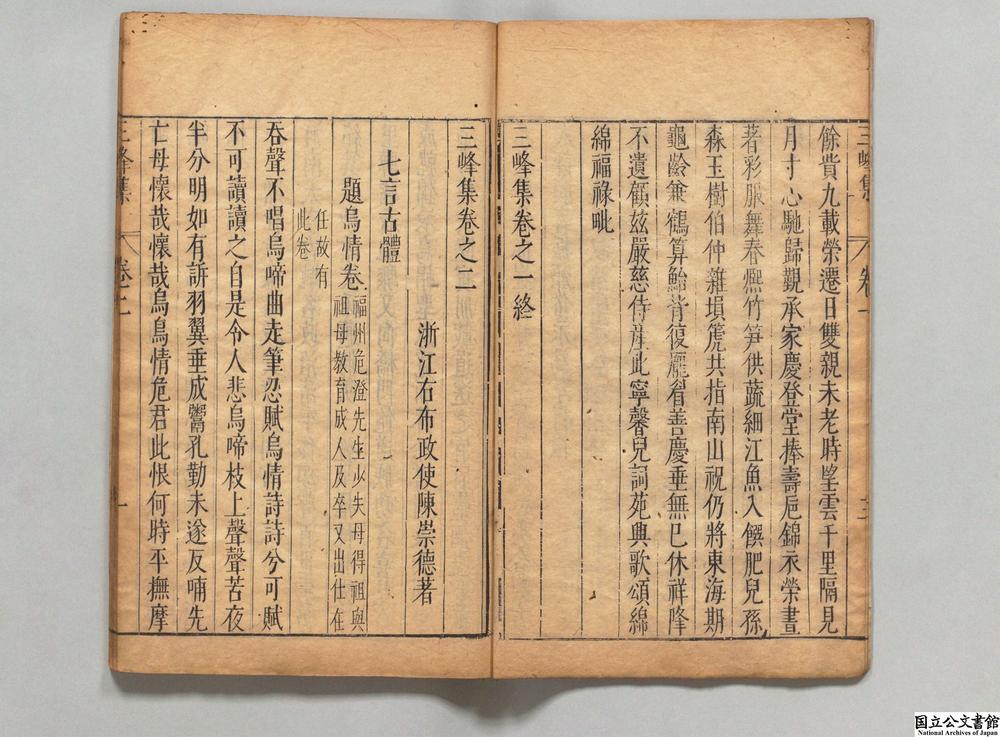 餘貲九載榮遷日雙親未老時望雲千里隔見
月寸心馳歸覲承家慶登堂捧壽巵錦衣榮晝
著彩服舞春熈竹笋供蔬細江魚入饌肥兒孫
森玉樹伯仲雜塤箎共指南山祝仍將東海期
龜齡兼鶴算鮐背復龎眉善慶垂無已休祥降
不遺顧玆嚴慈侍産此寧馨兒詞苑興歌頌綿
綿福祿毗
三峰集卷之一終
三峰集 卷一 三
三峰集卷之二
浙江右布政使陳崇德著
七言古體
題烏情卷 福州危澄先生少失母得祖與
祖母教育成人及卒又出仕在
任故有
此卷
吞聲不唱烏啼曲走筆忍賦烏情詩詩兮可賦
不可讀讀之自是令人悲烏啼枝上聲聲苦夜
半分明如有訴羽翼垂成鬻孔勤未遂反哺先
亡母懷哉懷哉烏烏情危君此恨何時平撫摩
三峰集 卷二 一
国立公文書館
National Archives of Japan